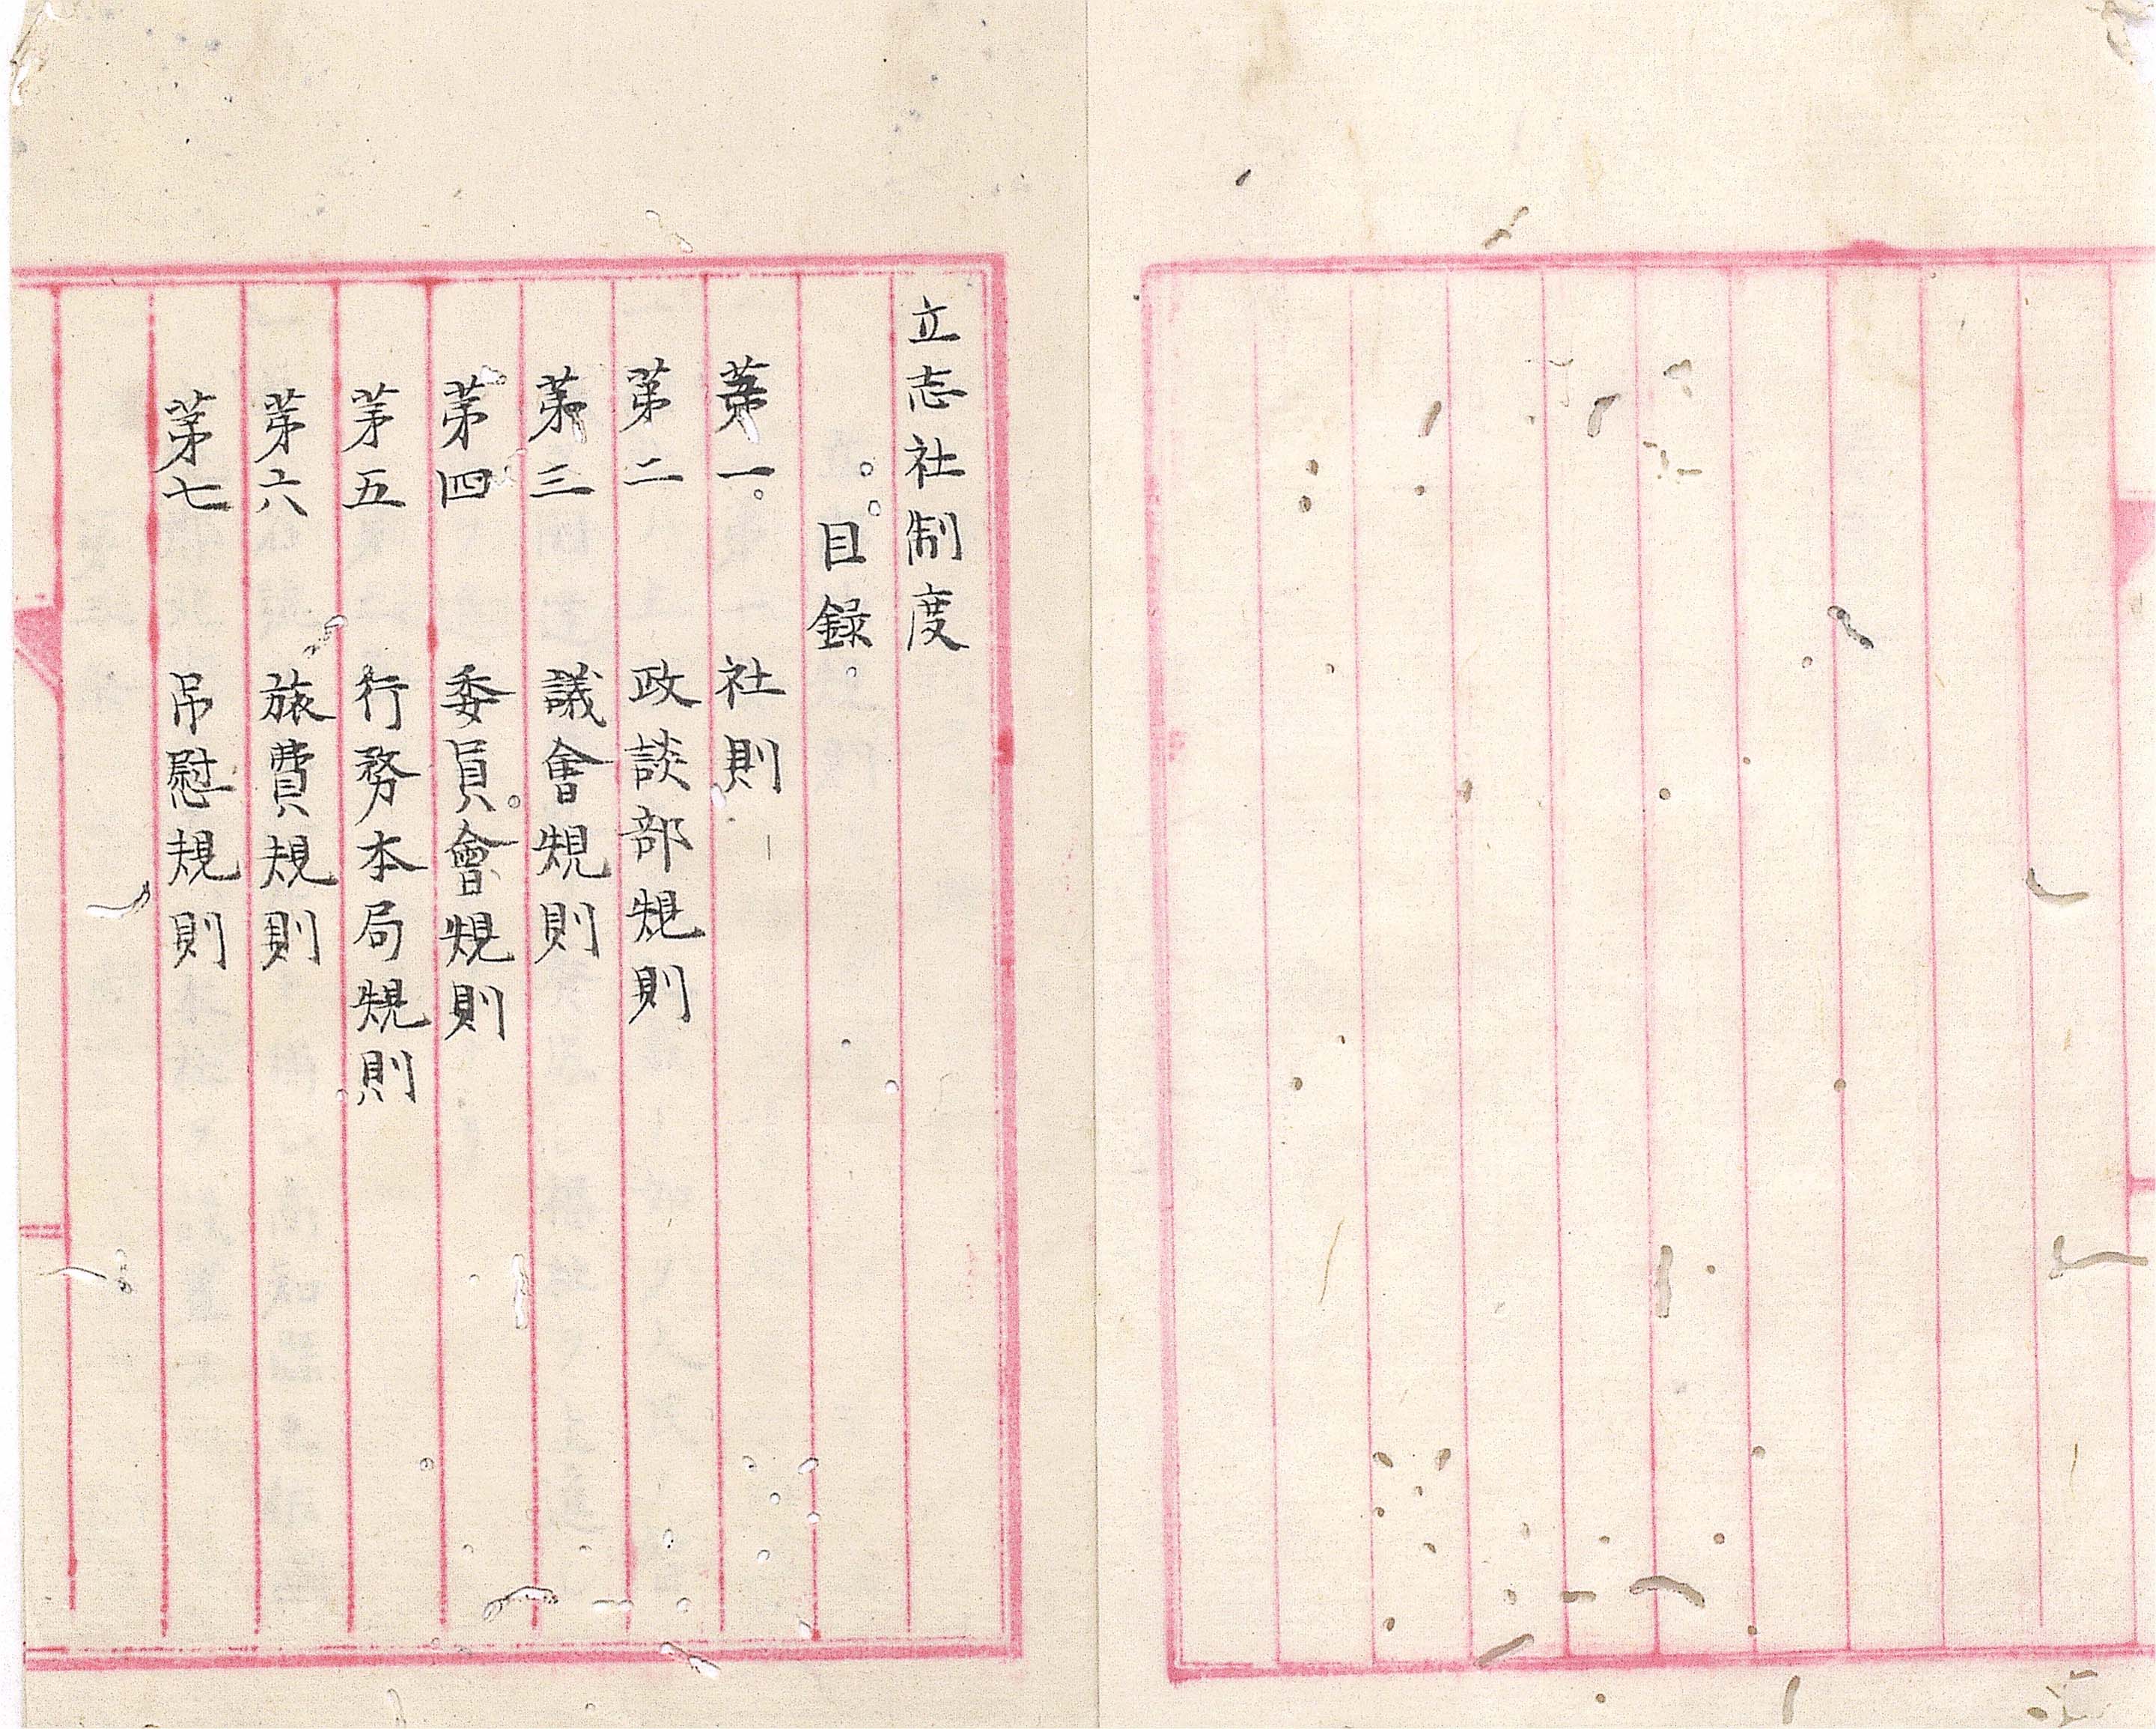 立志社制度
目録
第一　社則
第二　政談部規則
第三　議會規則
第四　委員會規則
第五　行務本局規則
第六　旅費規則
第七　吊慰規則